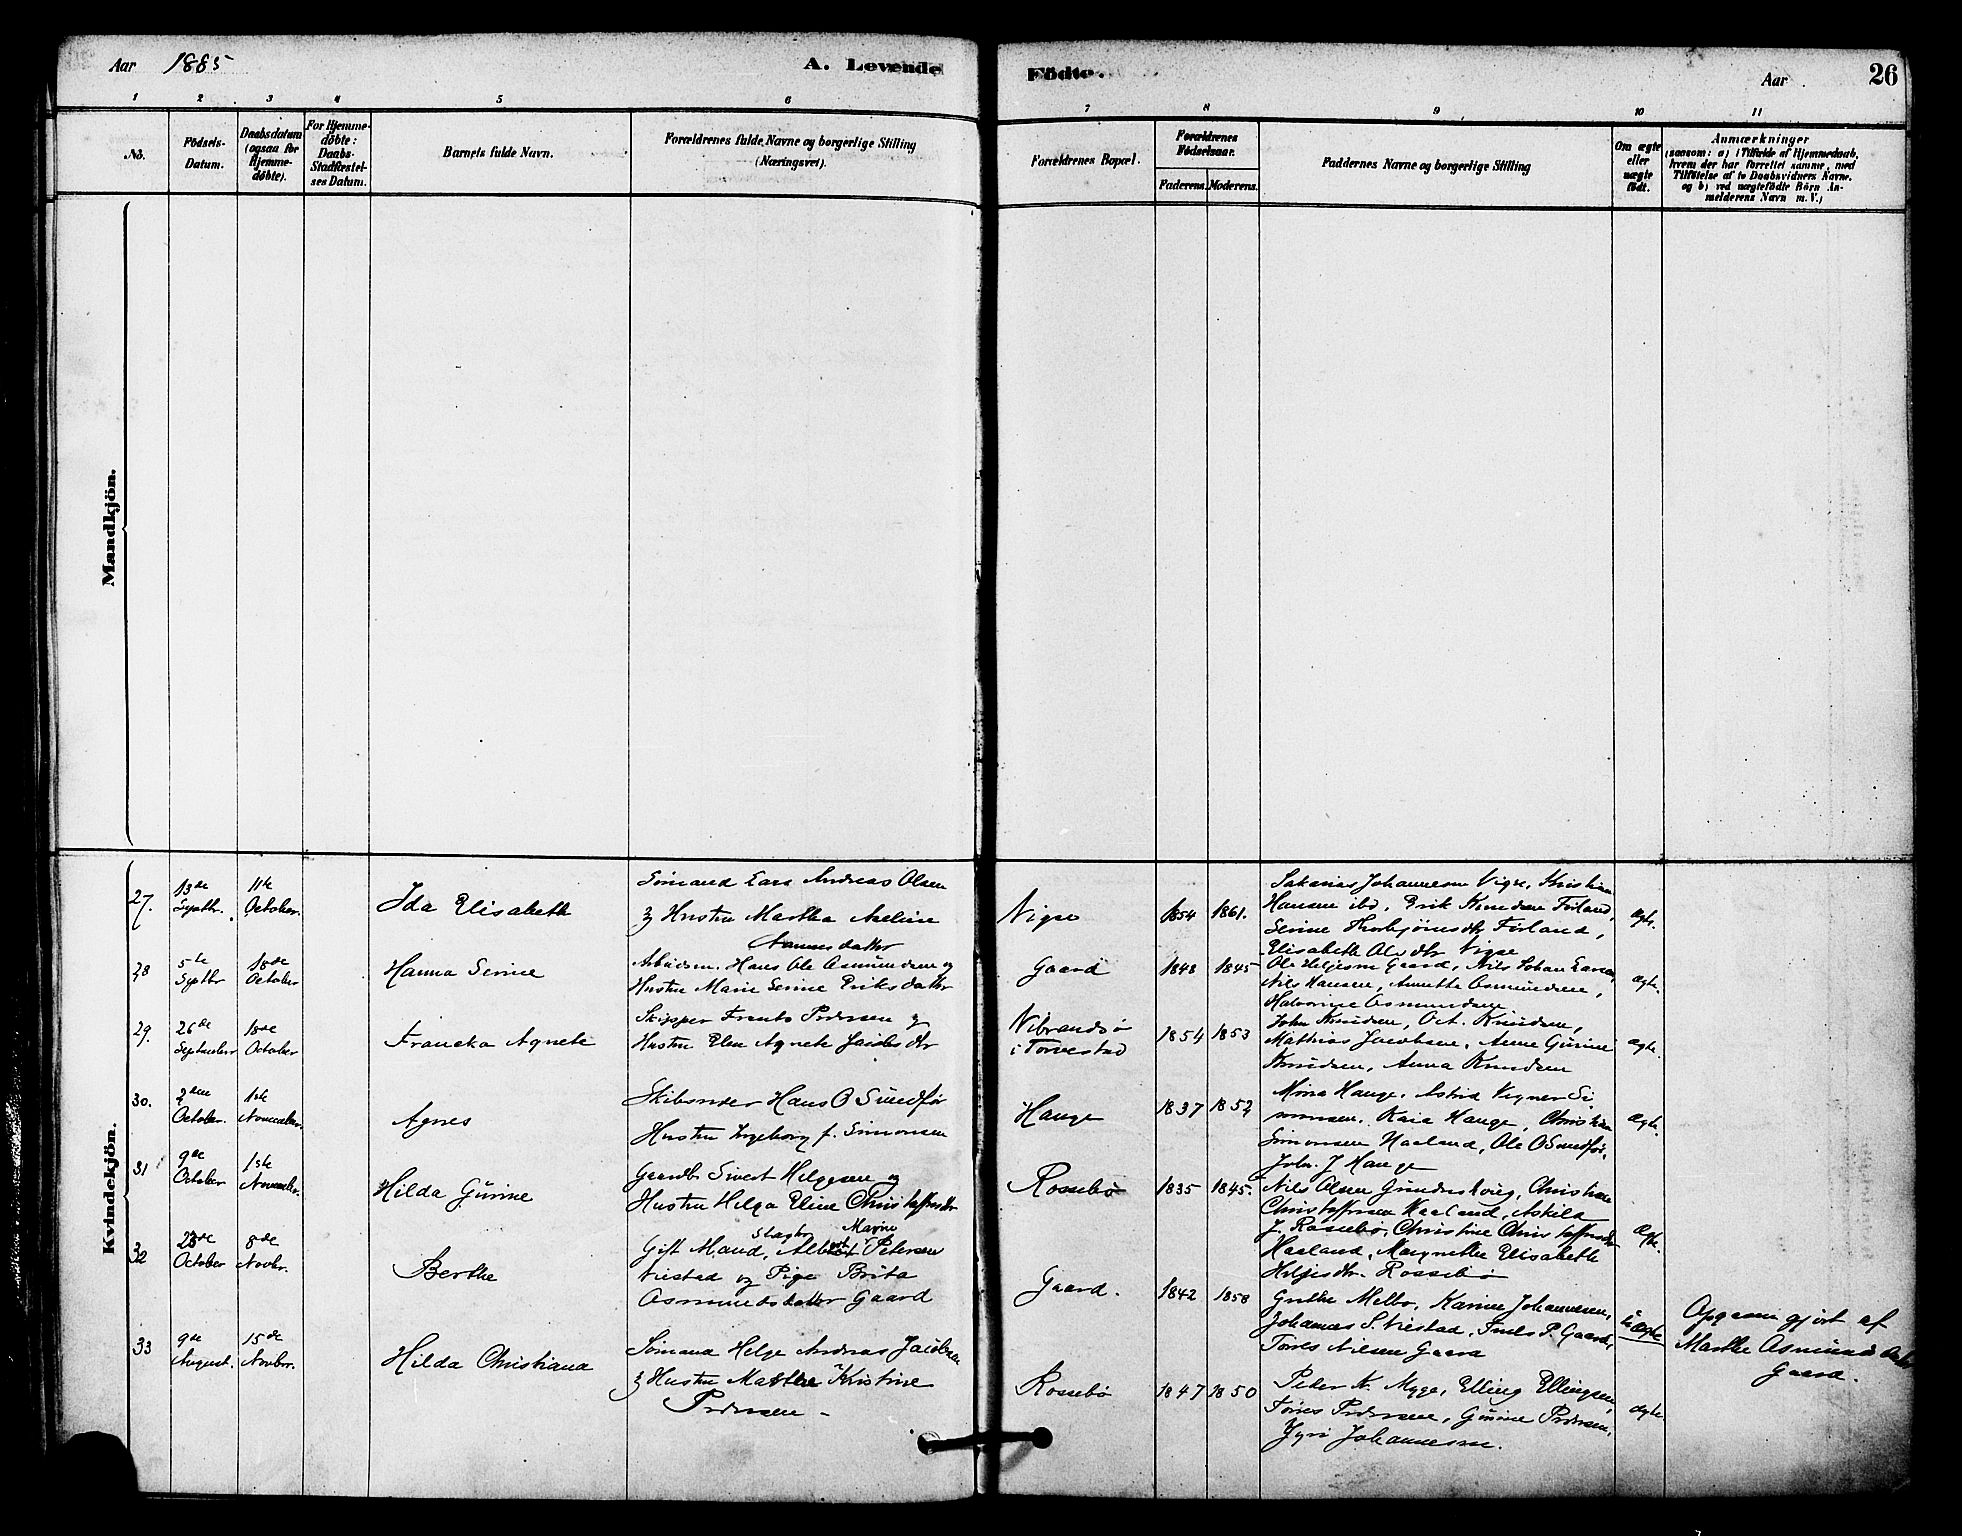 Aar 1885
A. Levende
Födte.
Aar
26
1 2 3 4 5 6 7 8 9 10 11
No.
Födsels-
Datum.
Daabsdatum
(ogsaa for
Hjemme-
döbte).
For Hjemme-
döbte:
Daabs-
Stadfæstel-
ses Datum.
Barnets fulde Navn.
Forældrenes fulde Navne og borgerlige Stilling
(Næringsvei).
Forældrenes Bopæl.
Forældrenes
Födselsaar.
Faderens. Moderens.
Faddernes Navne og borgerlige Stilling
Om ægte
eller
uægte
födt.
Anmærkninger
(saasom: a) i Tilfælde af Hjemmedaab,
hvem der har forrettet samme, med
Tilföielse af to Daabsvidners Navne.
og b) ved uægtefödte Börn An-
melderens Navn m. V.)
Mandkjön.
Kvindekjön.
27.
13de
Septbr.
11te
October.
Ida Elisabeth
Sømand Lars Andreas Olsen
Hustru Martha
1854
1861.
Sakarias Johannesen Vigse, Kristian
Hansen ibd, Erik Knudsen Førland,
Serine Thorbjørnsdtr Førland,
Elisabeth Olsdtr Vigse
ægte.
28
5te
Septbr
18de
October
Hanna Serine
Hans Ole Asmundsen og
Hustru Marie Serine Eriksdatter
Gaard
1848
1845
Ole Helgesen Gaard, Nils Johan Larsen,
Nils Hansen, Annette Asmundsen,
Halvorine Asmundsen
ægte.
29.
26de
September
18de
October
Francka Agnete
Skipper Frants Pedersen og
Hustru Elen Agnete Jacobsdtr
Vibrandsø
i Torvestad
1854
1853
John Knudsen, Oct. Knudsen,
Mathias Jacobsen, Anne Gurine
Knudsen, Anna Knudsen
ægte.
30.
2den
October.
1ste
November.
Agnes
Hans O Sundfør
Hustru Ingeborg f. Simonsen
Hauge
1837
1852
Mina Hauge, Astrid Vegner Si
monsen, Kaia Hauge, Christian
Simonsen Haaland, Ole O Sundfør,
Johs. J Hauge
ægte.
31
9de
October
1ste
November.
Hilda Gurine
Gaardb. Sivert Helgesen og
Hustru Helga Eline Christoffersdtr
Rossebø
1835
1845.
Nils Olsen Gunderskoug, Christian
Christoffersen Haaland, Askild
J. Rossebø, Christine Christoffersdtr
Haaland, Margrethe Elisabeth
Helgesdtr. Rossebø
ægte.
32
23de
October
8de
Novbr.
Berthe
Gift Mand, Albert Petersen
og Pige Brita
Asmundsdatter Gaard
Gaard.
1842
1858
Grethe Melbo, Karine Johannesen,
Johannes S.
Tørres Nilsen Gaard
uægte
Opgaven gjort af
Marthe Asmunds
Gaard.
33
9de
August.
15de
Novbr.
Hilda Christiana
Sømand Helge Andreas Jacobsen
Hustru Marthe Kristine
Pedersen
Rossebø
1847
1850
Peder N. Mgge, Elling Ellingsen,
Tørres Pedersen, Gurine Pedersen,
Johannesen.
ægte